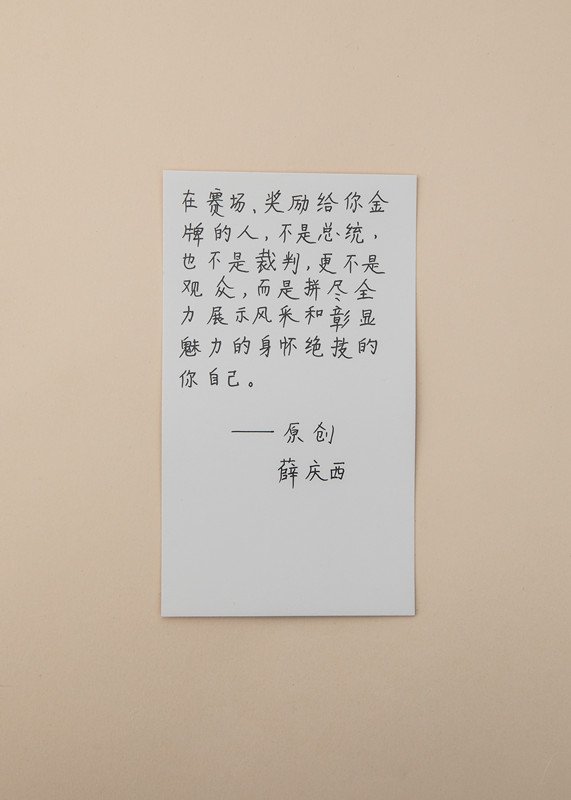 在赛场、奖励给你金
牌的人,不是总统,
也不是裁判,更不是
观众,而是拼尽全
力展示风采和彰显
魅力的身怀绝技的
你自己。
——原创
薛庆西